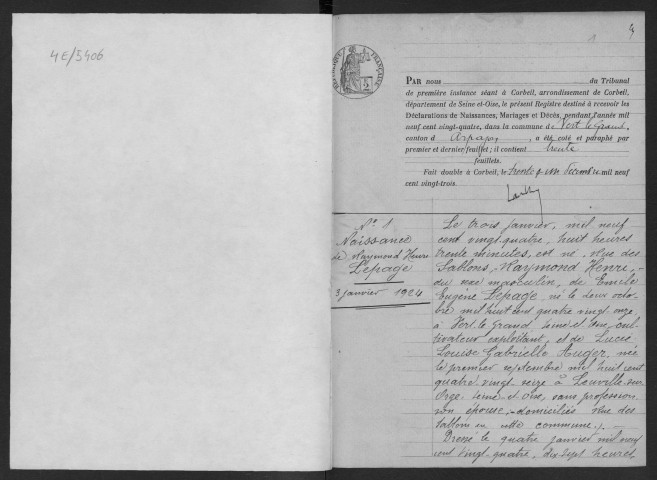 4E/5406
RÉPUBLIQUE FRANÇAISE
2
PAR nous du Tribunal
de première instance séant à Corbeil, arrondissement de Corbeil,
département de Seine-et-Oise, le présent Registre destiné à recevoir les
Déclarations de Naissances, Mariages et Décès, pendant l'année mil
neuf cent vingt-quatre, dans la commune de Vert le Grand,
canton d'Arpajon, a été coté et paraphé par
premier et dernier feuillet; il contient trente
feuillets.
Fait double à Corbeil, le trente & un Décembre mil neuf
cent vingt-trois.
N° 1
Naissance
de Raymond Henri
Lepage
3 janvier 1924
Le trois janvier, mil neuf
cent vingt quatre, huit heures
trente minutes, est né, rue des
Sablons, Raymond Henri,
du sexe masculin, de Emile
Eugène Lepage, né le deux octo-
bre mil huit cent quatre vingt onze
à Vert le Grand, Seine et Oise, cul-
tivateur exploitant, et de Lucie
Louise Gabrielle Auger, née
le premier septembre mil huit cent
quatre vingt seize à Leuville sur
Orge Seine et Oise, sans profession
son épouse, domiciliés rue des
Sablons en cette commune. -
Dressé le quatre janvier mil neuf
cent vingt quatre, dix sept heures